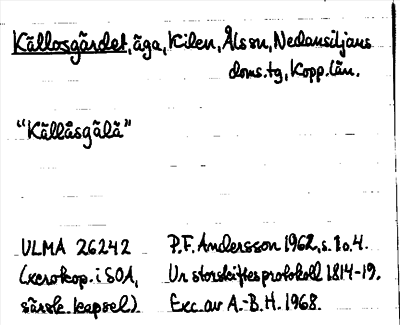 Källosgärdet, äga, Kilen, Ål sn, Nedansiljans
doms.tg, Kopp.län.
"Källåsgälä"
ULMA 26242
(xerokop. i SOA,
särsk. kapsel)
P.F. Andersson 1962, s. 1 o. 4.
Ur storskiftesprotokoll 1814-19.
Exc. av A.-B. H. 1968.